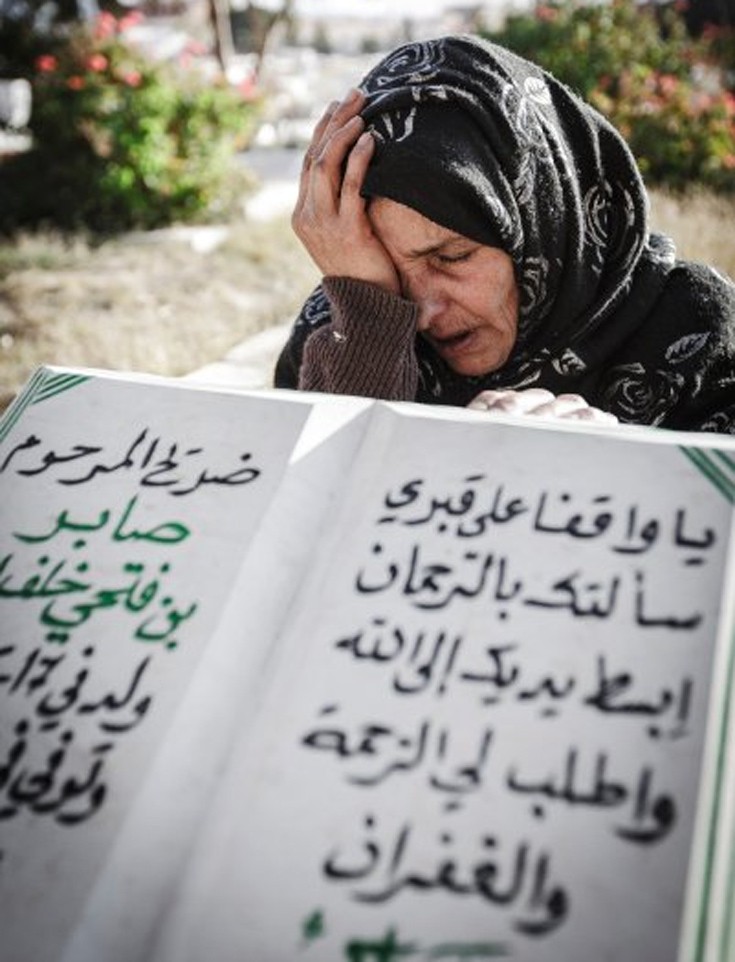 يا واقفا على قبري
سألتك بالترحمان
إبسط يديك إلى الله
واطلب لي الرحمة
والغفران
ضريح المرحوم
صابر
بن فتحي خلف
ولد في
وتوفي في